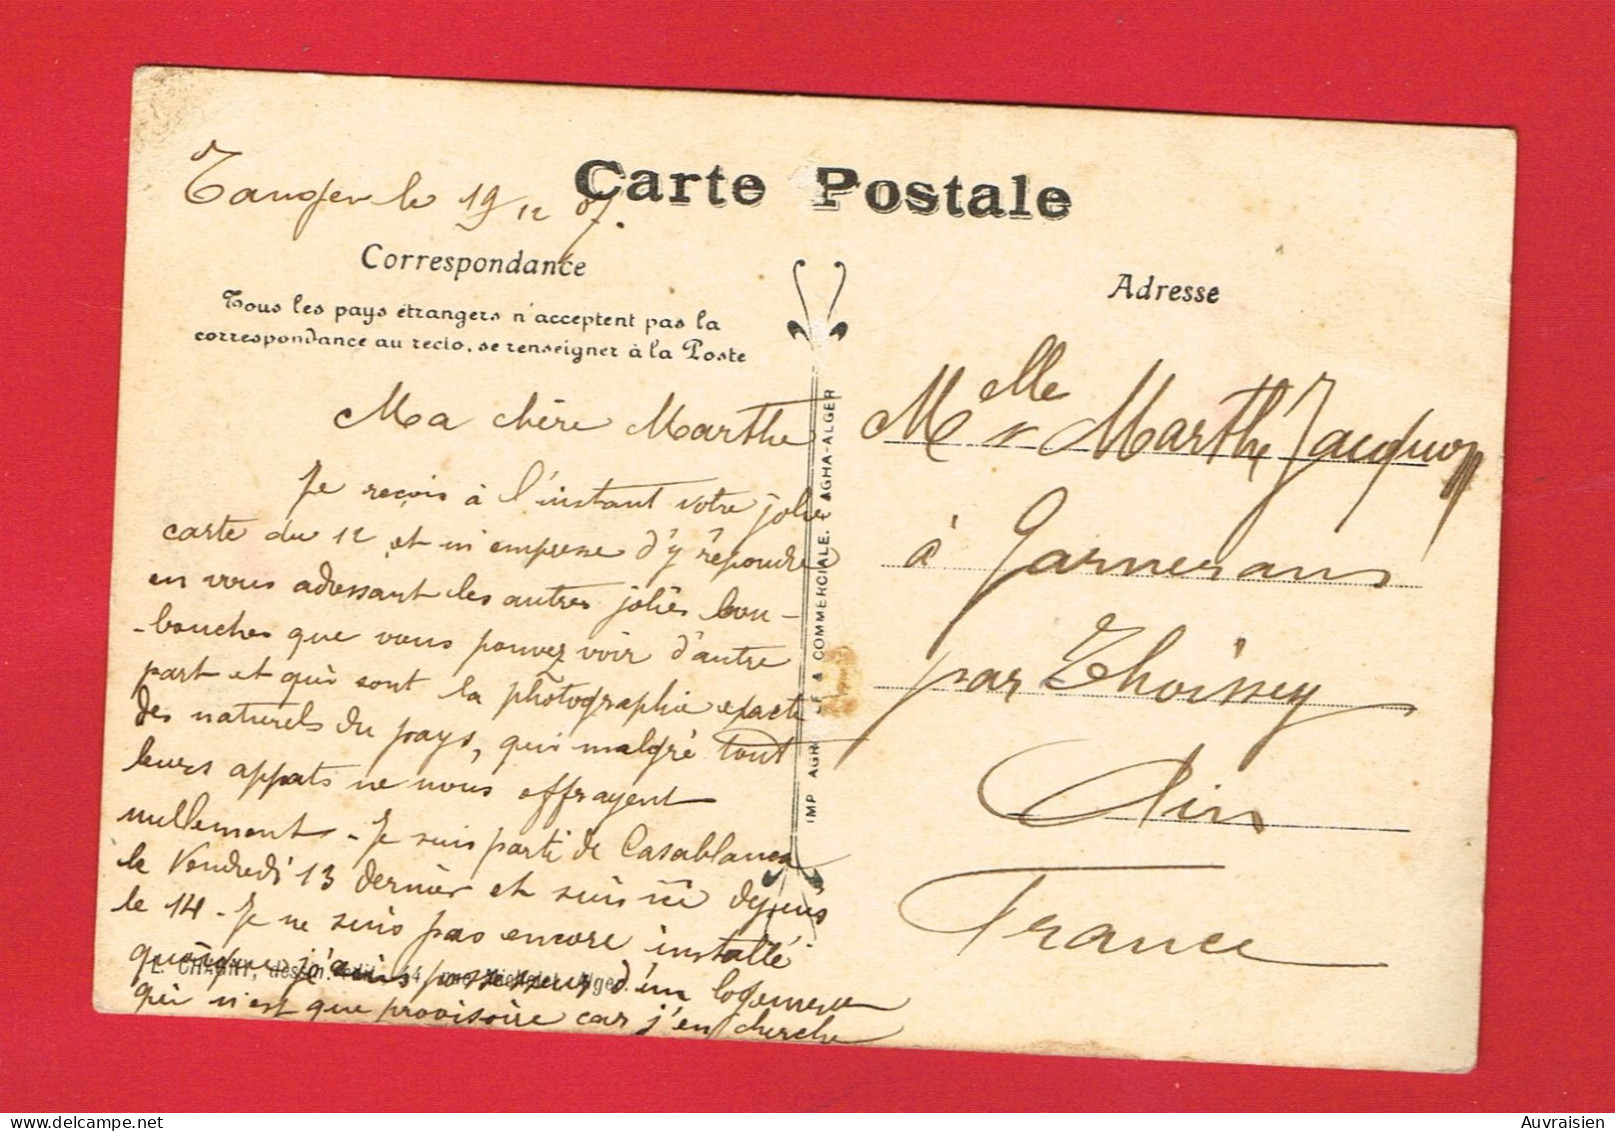 Carte Postale
Tanger le 19/12 07.
Correspondance
Tous les pays étrangers n'acceptent pas la
correspondance au recto, se renseigner à la Poste
Ma chère Marthe
Je reçois à l'instant votre jolie
carte du 12 et m'empresse d'y répondre
en vous adressant les autres jolies bou-
-bouches que vous pouvez voir d'autre
part et qui sont la photographie exacte
des naturels du pays, qui malgré tout
leurs appats ne nous effrayent
nullement - Je suis parti de Casablanca
le Vendredi 13 dernier et suis ici depuis
le 14 - Je ne suis pas encore installé
quoique je suis possesseur d'un logement
qui n'est que provisoire car j'en cherche
L. CHAGNY, dessin. édit. 14, rue Michelet, Alger.
IMP AGRICOLE & COMMERCIALE. AGHA-ALGER
Adresse
Melle Marthe Jacquon
à Garnerans
par Thoissey
Ain
France
Auvraisien